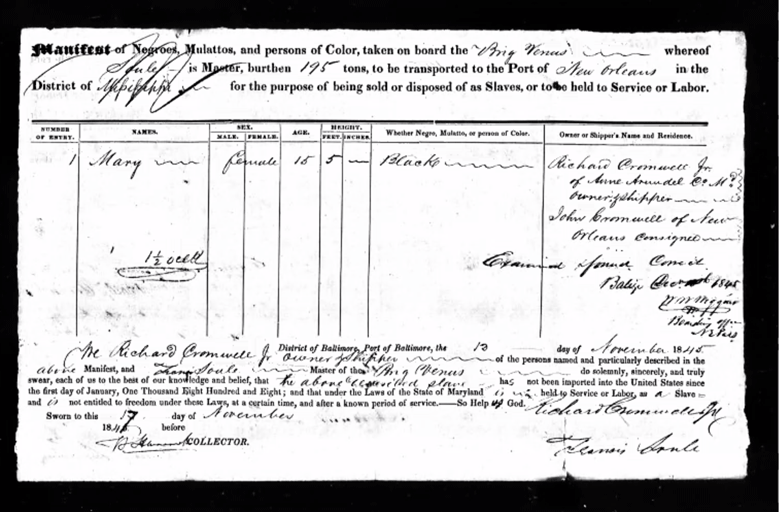 Manifest of Negroes, Mulattos, and persons of Color, taken on board the Brig Venus whereof
Soule is Master, burthen 195 tons, to be transported to the Port of New Orleans in the
District of Mississippi for the purpose of being sold or disposed of as Slaves, or to be held to Service or Labor.
NUMBER OF ENTRY. NAMES. SEX. MALE. FEMALE. AGE. HEIGHT. FEET. INCHES. Whether Negro, Mulatto, or person of Color. Owner or Shipper's Name and Residence.
1 Mary female 15 5 Black Richard Cromwell Jr.
of Anne Arundel Co. Md
owner & shipper
John Cromwell of New
Orleans consignee
1½
Examined found Correct
1845
Boarding
District of Baltimore, Port of Baltimore, the 13 day of November 1845
We Richard Cromwell Jr owner & shipper of the persons named and particularly described in the
above Manifest, and Francis Soule Master of the Brig Venus do solemnly, sincerely, and truly
swear, each of us to the best of our knowledge and belief, that the above described slave has not been imported into the United States since
the first day of January, One Thousand Eight Hundred and Eight; and that under the Laws of the State of Maryland is held to Service or Labor, as a Slave
and is not entitled to freedom under these Laws, at a certain time, and after a known period of service.—So Help us God.
Richard Cromwell Jr
Sworn to this 17 day of November
1845 before
COLLECTOR.
Francis Soule